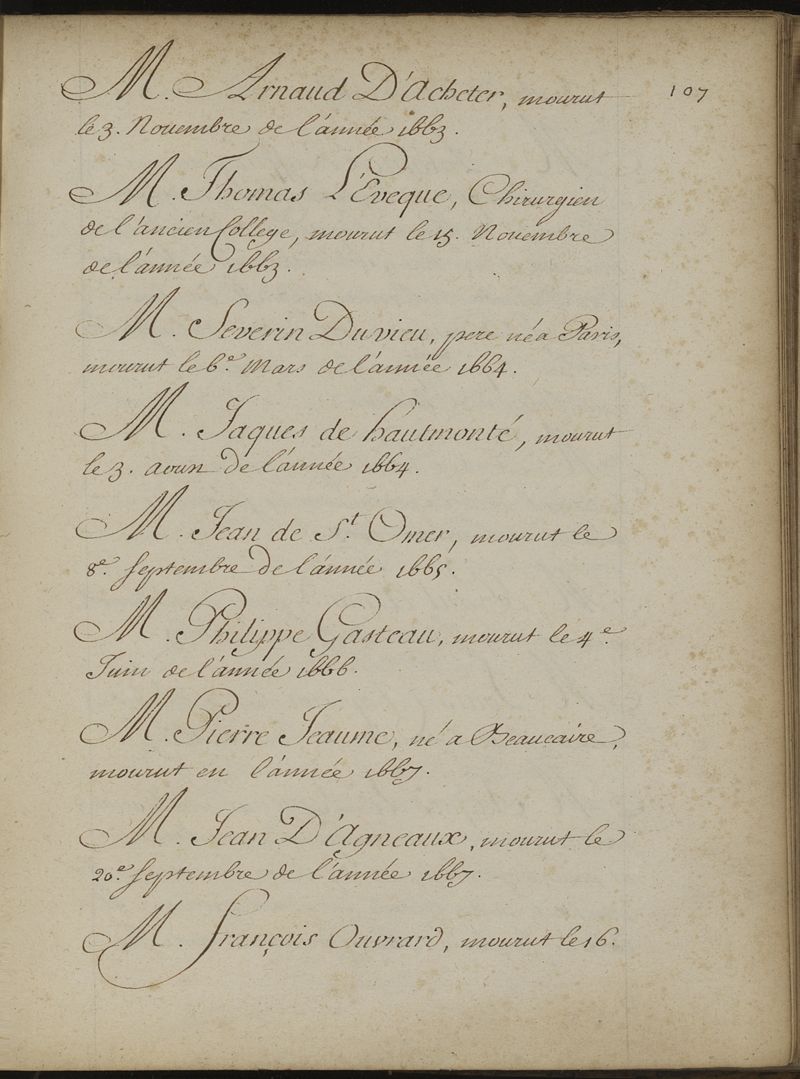 107
M. Arnaud D'Acheter, mourut
le 3. Novembre de l'année 1663.
M. Thomas L'Eveque, Chirurgien
de l'ancien College, mourut le 15. Novembre
de l'année 1663.
M. Severin Duvieu, pere né a Paris,
mourut le 6e. Mars de l'année 1664.
M. Jaques de hautmonté, mourut
le 3. aoust de l'année 1664.
M. Jean de St. Omer, mourut le
8e. septembre de l'année 1665.
M. Philippe Gasteau, mourut le 4e.
Juin de l'année 1666.
M. Pierre Jeaume, né a Beaucaire,
mourut en l'année 1667.
M. Jean D'Agneaux, mourut le
20e. septembre de l'année 1667.
M. françois Ouvrard, mourut le 16.